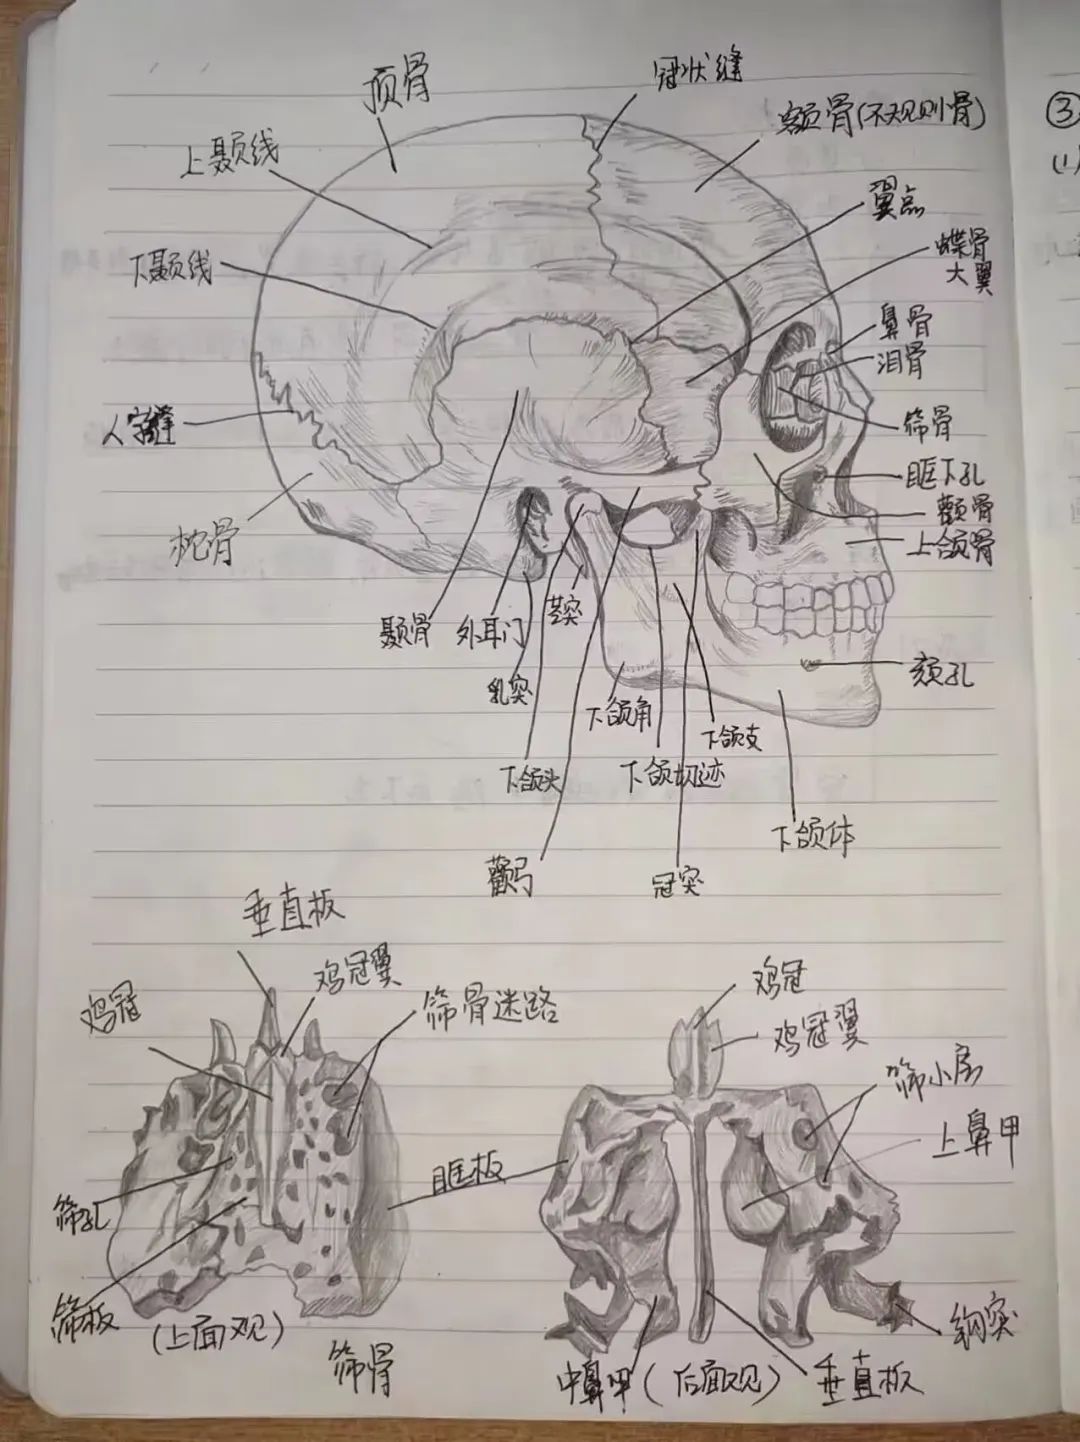 顶骨
冠状缝
额骨(不规则骨)
上颞线
翼点
下颞线
蝶骨
大翼
鼻骨
泪骨
人字缝
筛骨
眶下孔
颧骨
上颌骨
枕骨
颞骨
外耳门
茎突
乳突
下颌角
颏孔
下颌支
下颌头
下颌切迹
下颌体
颧弓
冠突
垂直板
鸡冠翼
鸡冠
筛骨迷路
鸡冠
鸡冠翼
筛小房
上鼻甲
眶板
筛孔
筛板
(上面观)
筛骨
中鼻甲(后面观)
垂直板
钩突
③
(1)